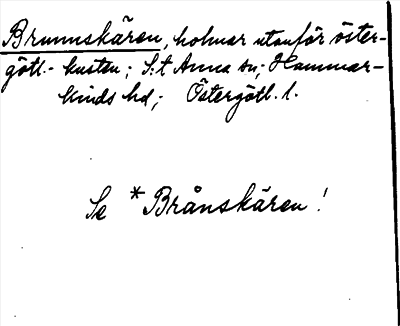 Brunnskären, holmar utanför öster-
götl.- kusten; S:t Anna sn; Hammar-
kinds hd; Östergötl. l.
Se *Brånskären!